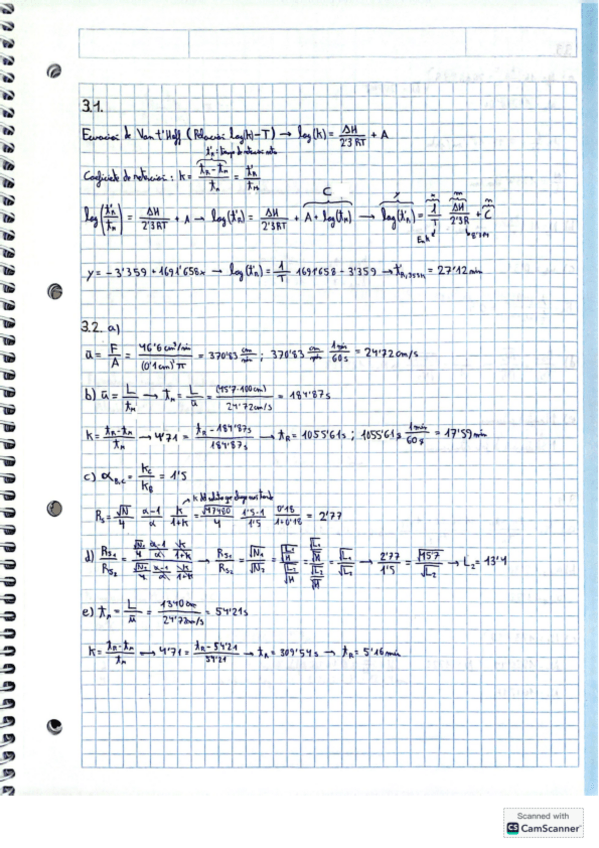 3.1.
Ecuación de Van t'Hoff (Relación log(k)-T) → log(k) = ΔH/2'3RT + A
t'R = tiempo de retención neto
Coeficiente de retención: k = (tR - tm)/tm = t'R/tm
C y m
log(t'R/tm) = ΔH/2'3RT + A → log(t'R) = ΔH/2'3RT + A + log(tm) → log(t'R) = 1/T ΔH/2'3R + C
En K
y = -3'359 + 1691'658x → log(t'R) = 1/T 1691658 - 3'359 → t'R,353K = 27'12 min
3.2. a)
ū = F/A = 46'6 cm³/min / (0'1cm)²π = 370'83 cm/min ; 370'83 cm/min 1min/60s = 24'72 cm/s
b) ū = L/tm → tm = L/ū = (45'7·100cm)/24'72cm/s = 184'87s
k = (tR - tm)/tm → 4'71 = (tR - 184'87s)/184'87s → tR = 1055'61s ; 1055'61s 1min/60s = 17'59 min
c) αB,C = kC/kB = 1'5
Rs = √N/4 α-1/α k/1+k = √17480/4 1'5-1/1'5 0'18/1+0'18 = 2'77
d) Rs1/Rs2 = (√N1/4 α-1/α k/1+k)/(√N2/4 α-1/α k/1+k) → Rs1/Rs2 = √N1/√N2 = √(L1/H)/√(L2/H) = (√L1/√H)/(√L2/√H) = √L1/√L2 → 2'77/1'5 = √45'7/√L2 → L2 = 13'4
e) tm = L/ū = 1340cm/24'72cm/s = 54'21s
k = (tR - tm)/tm → 4'71 = (tR - 54'21)/54'21 → tR = 309'54s → tR = 5'16 min
Scanned with
CS CamScanner